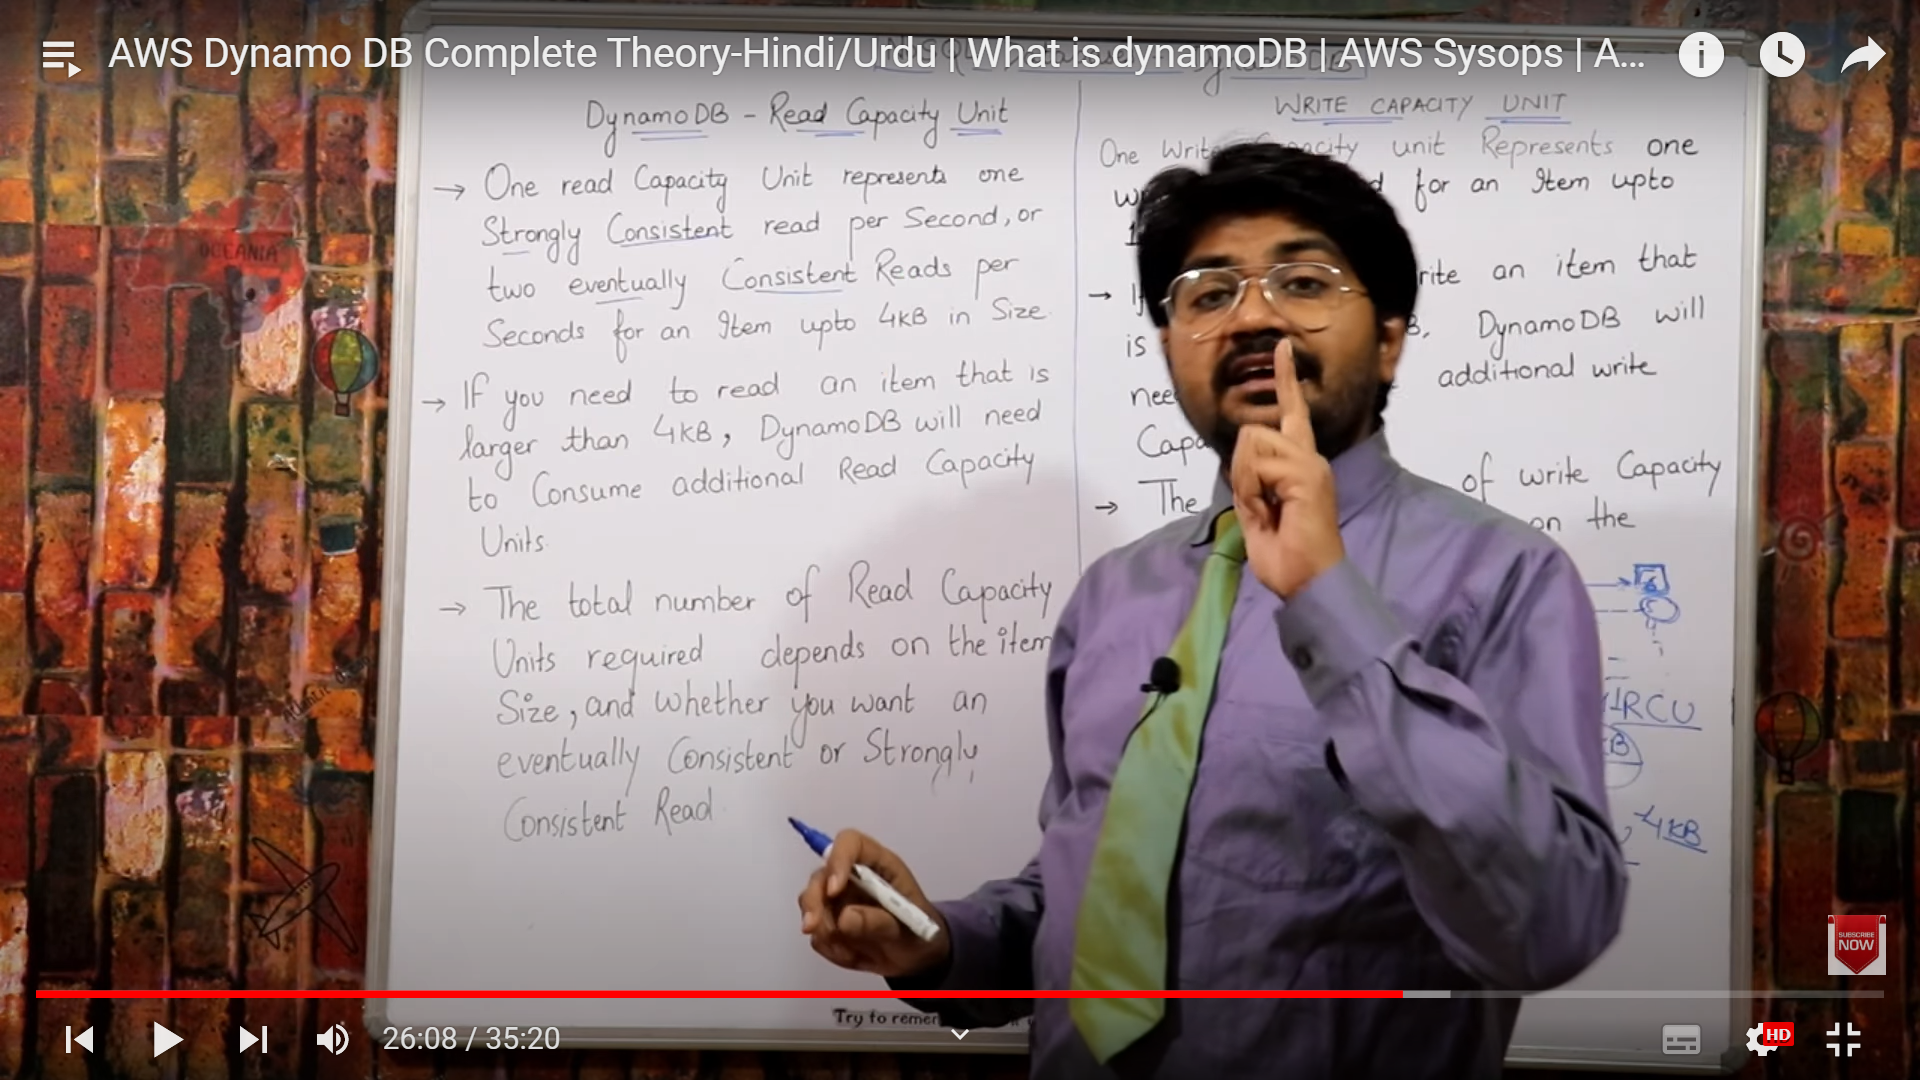 AWS Dynamo DB Complete Theory-Hindi/Urdu | What is dynamoDB | AWS Sysops | A...
DynamoDB - Read Capacity Unit
→ One read Capacity Unit represents one
Strongly Consistent read per Second, or
two eventually Consistent Reads per
Seconds for an Item upto 4KB in Size.
→ If you need to read an item that is
larger than 4KB, DynamoDB will need
to Consume additional Read Capacity
Units.
→ The total number of Read Capacity
Units required depends on the item
Size, and whether you want an
eventually Consistent or Strongly
Consistent Read.
WRITE CAPACITY UNIT
One Write Capacity unit Represents one
for an Item upto
1
→ If rite an item that
is B, DynamoDB will
nee additional write
Capa
→ The of write Capacity
on the
1RCU
KB
4KB
OCEANIA
SUBSCRIBE
NOW
Try to remem
26:08 / 35:20
HD